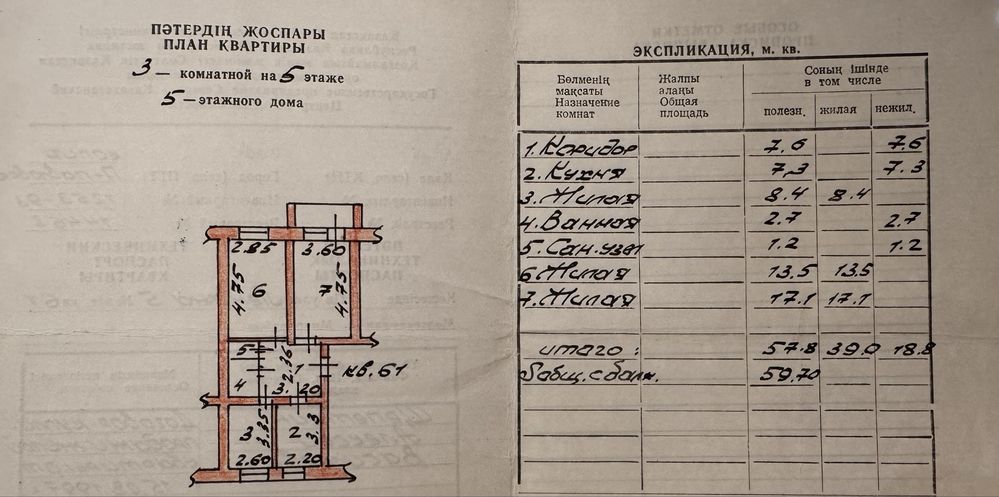 ПӘТЕРДІҢ ЖОСПАРЫ
ПЛАН КВАРТИРЫ
3 — комнатной на 5 этаже
5 — этажного дома
2.85 3.60
4.75 6 7 4.75
5 2.36 1 кв. 61
4 3.20
3 3.35 2 3.3
2.60 2.20
ЭКСПЛИКАЦИЯ, м. кв.
Бөлменің мақсаты Назначение комнат
Жалпы алаңы Общая площадь
Соның ішінде в том числе
полезн. жилая нежил.
1. Коридор 7.6 7.6
2. Кухня 7.3 7.3
3. Жилая 8.4 8.4
4. Ванная 2.7 2.7
5. Сан.узел 1.2 1.2
6 Жилая 13.5 13.5
7. Жилая 17.1 17.1
итого: 57.8 39.0 18.8
Sобщ. с балк. 59.70